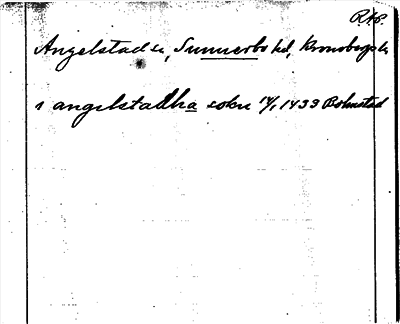 RAP.
Angelstad sn, Sunnerbo hd, Kronobergs l.
i angelstadha sokn 14/1 1433 Bolmstad